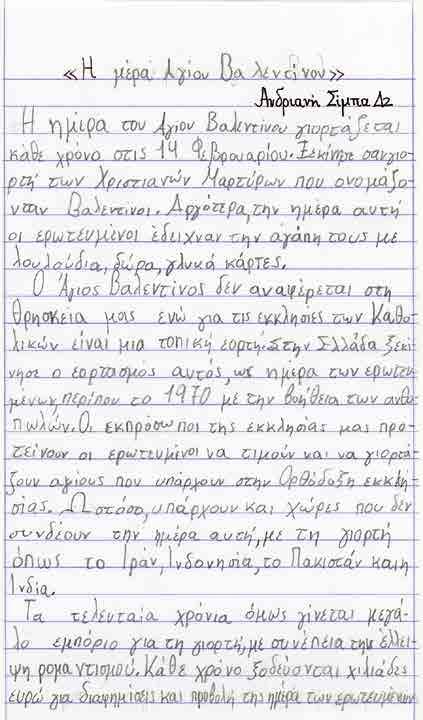 «Η μέρα Αγίου Βαλεντίνου»
Ανδριανή Σίμπα Δ2
Η ημέρα του Αγίου Βαλεντίνου γιορτάζεται
κάθε χρόνο στις 14 Φεβρουαρίου. Ξεκίνησε σαν γιο-
ρτή των Χριστιανών Μαρτύρων που ονομάζο-
νταν Βαλεντίνοι. Αργότερα, την ημέρα αυτή
οι ερωτευμένοι έδειχναν την αγάπη τους με
λουλούδια, δώρα, γλυκά κάρτες.
Ο Άγιος Βαλεντίνος δεν αναφέρεται στη
θρησκεία μας ενώ για τις εκκλησίες των Καθο-
λικών είναι μια τοπική εορτή. Στην Ελλάδα ξεκί-
νησε ο εορτασμός αυτός, ως ημέρα των ερωτευ-
μένων, περίπου το 1970 με την βοήθεια των ανθο-
πωλών. Οι εκπρόσωποι της εκκλησίας μας προ-
τείνουν οι ερωτευμένοι να τιμούν και να γιορτά-
ζουν αγίους που υπάρχουν στην Ορθόδοξη εκκλη-
σίας. Ωστόσο, υπάρχουν και χώρες που δεν
συνδέουν την ημέρα αυτή, με τη γιορτή
όπως το Ιράν, Ινδονησία, το Πακιστάν και η
Ινδία.
Τα τελευταία χρόνια όμως γίνεται μεγά-
λο εμπόριο για τη γιορτή, με συνέπεια την έλλει-
ψη ρομαντισμού. Κάθε χρόνο ξοδεύονται χιλιάδες
ευρώ για διαφημίσεις και προβολή της ημέρα των ερωτευμένων